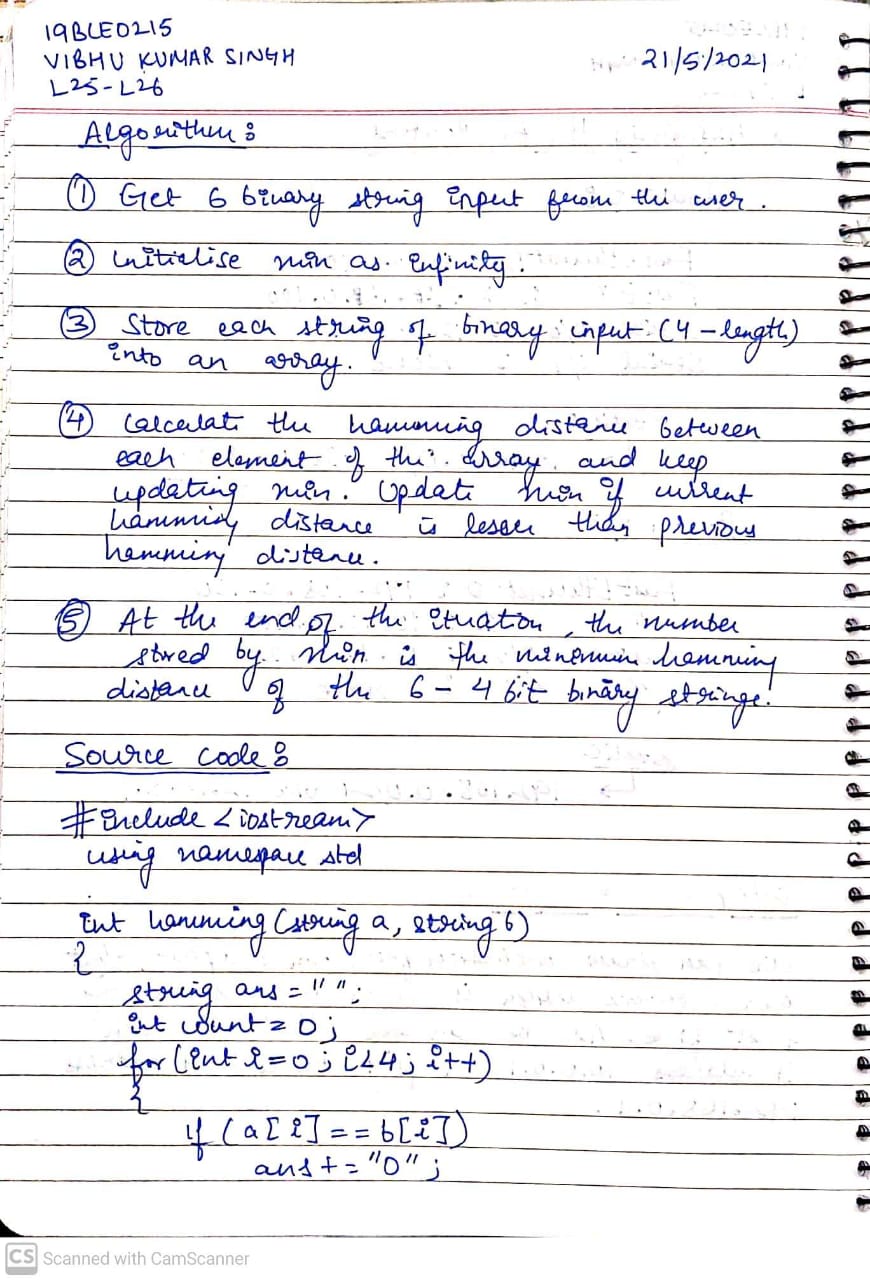 19BLE0215
VIBHU KUMAR SINGH 21/5/2021
L25-L26
Algorithm :
① Get 6 binary string input from the user.
② Initialise min as infinity.
③ Store each string of binary input (4-length)
into an array.
④ Calculate the hamming distance between
each element of the array and keep
updating min. Update min if current
hamming distance is lesser than previous
hamming distance.
⑤ At the end of the itration, the number
stored by min is the minimum hamming
distance of the 6-4 bit binary strings.
Source code :
#include <iostream>
using namespace std
int hamming (string a, string b)
{
string ans = "";
int count = 0;
for (int i=0; i<4; i++)
{
if (a[i] == b[i])
ans += "0";
CS Scanned with CamScanner